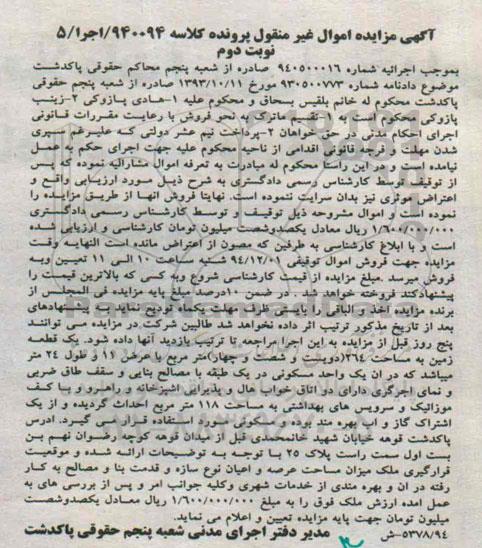 آگهی مزایده اموال غیر منقول پرونده کلاسه ۹۴۰۰۹۴/اجرا/۵
نوبت دوم
بموجب اجرائیه شماره ۹۴۰۵۰۰۰۱۶ صادره از شعبه پنجم محاکم حقوقی پاکدشت
موضوع دادنامه شماره ۹۳۰۵۰۰۷۷۳ مورخ ۱۳۹۳/۱۰/۱۱ صادره از شعبه پنجم حقوقی
پاکدشت محکوم له خانم بلقیس بسحاق و محکوم علیه ۱-هادی پازوکی ۲-زینب
پازوکی محکوم است به ۱-تقسیم ماترک به نحو فروش با رعایت مقررات قانونی
اجرای احکام مدنی در حق خواهان ۲-پرداخت نیم عشر دولتی که علیرغم سپری
شدن مهلت و فرجه قانونی اقدامی از ناحیه محکوم علیه جهت اجرای حکم به عمل
نیامده است و در این راستا محکوم له مبادرت به تعرفه اموال مشارالیه نموده که پس
از توقیف توسط کارشناس رسمی دادگستری به شرح ذیل مورد ارزیابی واقع و
اعتراض موثری نیز بدان سرایت ننموده است. نهایتا فروش آنها از طریق مزایده را
نموده است و اموال مشروحه ذیل توقیف و توسط کارشناس رسمی دادگستری
۱/۶۰۰/۰۰۰/۰۰۰ ریال معادل یکصدوشصت میلیون تومان کارشناسی و ارزیابی شده
است و با ابلاغ کارشناسی به طرفین که مصون از اعتراض مانده است النهایه وقت
مزایده جهت فروش اموال توقیفی ۹۴/۱۲/۰۱ شنبه ساعت ۱۰ الی ۱۱ تعیین و به
فروش میرسد .مبلغ مزایده از قیمت کارشناسی شروع و به کسی که بالاترین قیمت را
پیشنهاد کند فروخته خواهد شد . در ضمن ۱۰درصد مبلغ پایه مزایده فی المجلس از
برنده مزایده اخذ و الباقی را بایستی ظرف مهلت یکماه تودیع نمایند به پیشنهادهای
بعد از تاریخ مذکور ترتیب اثر داده نخواهد شد طالبین شرکت در مزایده می توانند
پنج روز قبل از مزایده به این اجرا مراجعه تا ترتیب بازدید آنها داده شود. یک قطعه
زمین به مساحت ۲۶۴(دویست و شصت و چهار)متر مربع با عرض ۱۱ و طول ۲۴ متر
میباشد که در آن یک واحد مسکونی در یک طبقه با مصالح بنایی و سقف طاق ضربی
و نمای آجرگری دارای دو اتاق خواب هال و پذیرایی آشپزخانه و راهرو و با کف
موزائیک و سرویس های بهداشتی به مساحت ۱۱۸ متر مربع احداث گردیده و از یک
اشتراک گاز و آب بهره مند بوده و مسکونی مورد استفاده قرار می گیرد. آدرس
پاکدشت قوهه خیابان شهید خانمحمدی قبل از میدان قوهه کوچه رضوان نهم بن
بست اول سمت راست پلاک ۲۵ با توجه به توضیحات ارائه شده و موقعیت
قرارگیری ملک میزان مساحت عرصه و اعیان نوع سازه و قدمت بنا و مصالح به کار
رفته در آن و بهره مندی از خدمات شهری وکلیه جوانب امر و پس از بررسی های به
عمل آمده ارزش ملک فوق را به مبلغ ۱/۶۰۰/۰۰۰/۰۰۰ ریال معادل یکصدوشصت
میلیون تومان جهت پایه مزایده تعیین و اعلام می نماید.
۵۳۷۸/۹۴-ش مدیر دفتر اجرای مدنی شعبه پنجم حقوقی پاکدشت